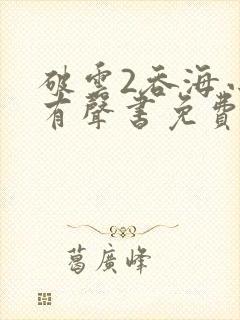 破雲2吞海
有聲書免費
葛廣峰